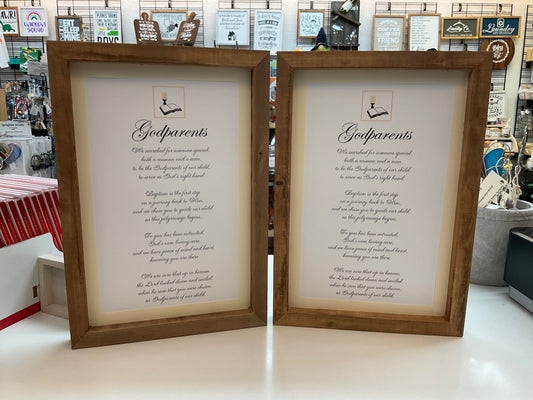 Godparents
We searched for someone special,
both a woman and a man,
to be the Godparents of our child,
to serve as God's right hand.
Baptism is the first step
on a journey back to Him,
and we chose you to guide our child
as this pilgrimage begins.
To you has been intrusted,
God's own loving care,
and we have peace of mind and heart,
knowing you are there.
We are sure that up in heaven
the Lord looked down and smiled,
when he saw that you were chosen,
as Godparents of our child.
Godparents
We searched for someone special,
both a woman and a man,
to be the Godparents of our child,
to serve as God's right hand.
Baptism is the first step
on a journey back to Him,
and we chose you to guide our child
as this pilgrimage begins.
To you has been intrusted,
God's own loving care,
and we have peace of mind and heart,
knowing you are there.
We are sure that up in heaven
the Lord looked down and smiled,
when he saw that you were chosen,
as Godparents of our child.
Laundry